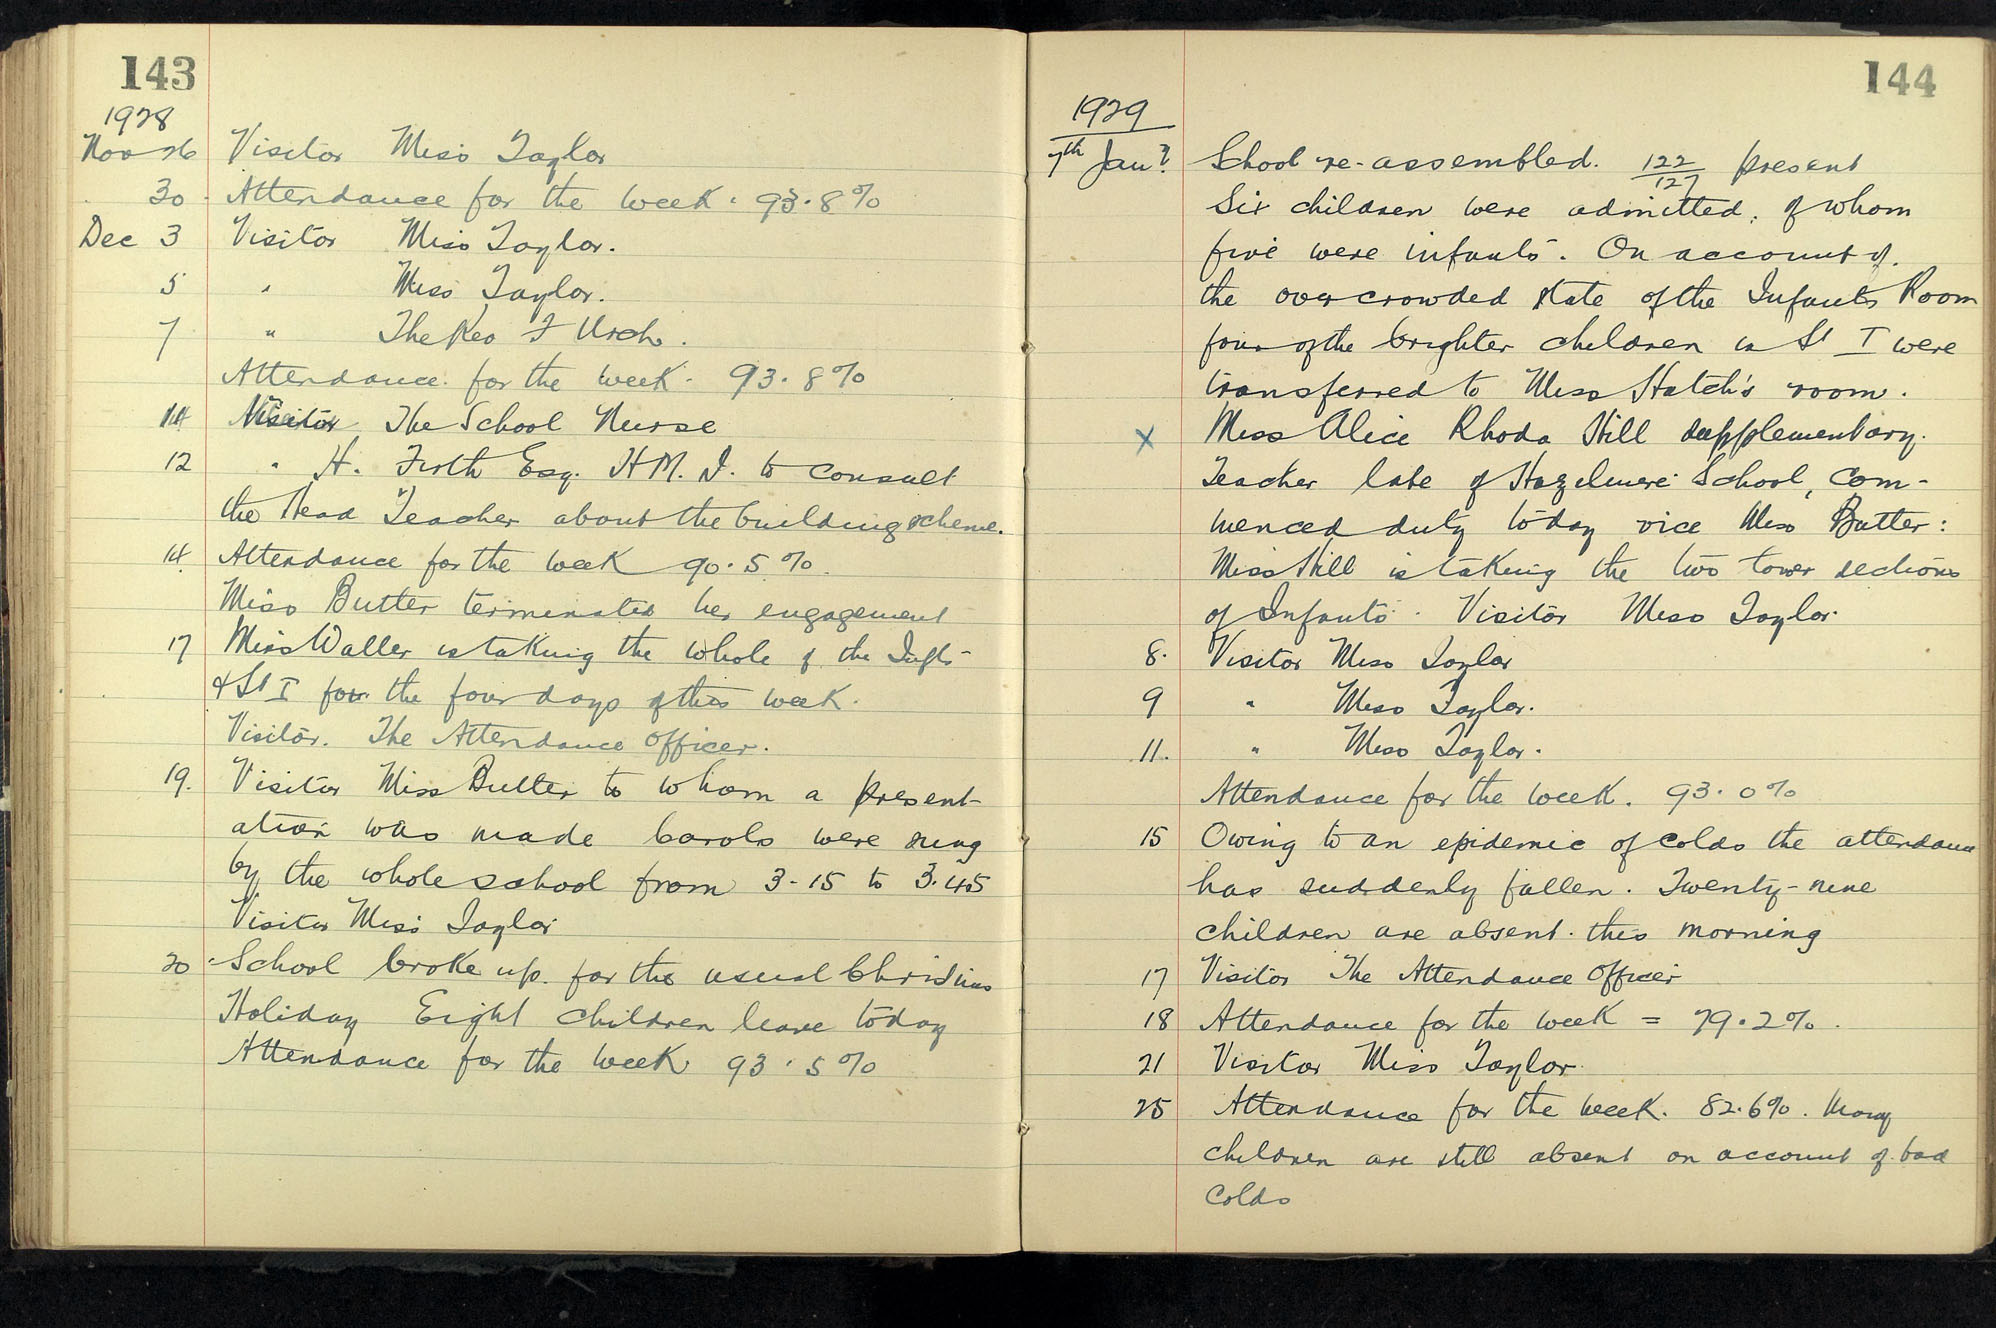 143
1928
Nov 26 Visitor Miss Taylor
30 Attendance for the week. 93.8%
Dec 3 Visitor Miss Taylor.
5 " Miss Taylor.
7 " The Rev F Urch.
Attendance for the week. 93.8%
Visitor The School Nurse
12 " H. Firth Esq. H.M.I. to consult
the Head Teacher about the building scheme.
14 Attendance for the week 90.5%.
Miss Butter terminates her engagement
17 Miss Waller is taking the whole of the Infts
& St I for the four days of this week.
Visitor. The Attendance Officer.
19. Visitor Miss Butter to whom a present-
ation was made Carols were sung
by the whole school from 3-15 to 3.45
Visitor Miss Taylor
20 School broke up for the usual Christmas
Holiday Eight children leave today
Attendance for the week 93.5%
144
1929
7th Jany School re-assembled. 122/127 present
Six children were admitted, of whom
five were infants. On account of
the overcrowded state of the Infants Room
four of the brighter children in St I were
transferred to Miss Hatch's room.
x Miss Alice Rhoda Hill supplementary
Teacher late of Hazelmere School, com-
menced duty today vice Miss Butter:
Miss Hill is taking the two lower sections
of Infants. Visitor Miss Taylor.
8. Visitor Miss Taylor
9 " Miss Taylor.
11. " Miss Taylor.
Attendance for the week. 93.0%
15 Owing to an epidemic of colds the attendance
has suddenly fallen. Twenty-nine
children are absent this morning
17 Visitor The Attendance Officer
18 Attendance for the week = 79.2%.
21 Visitor Miss Taylor.
25 Attendance for the week. 82.6%. Many
children are still absent on account of bad
colds